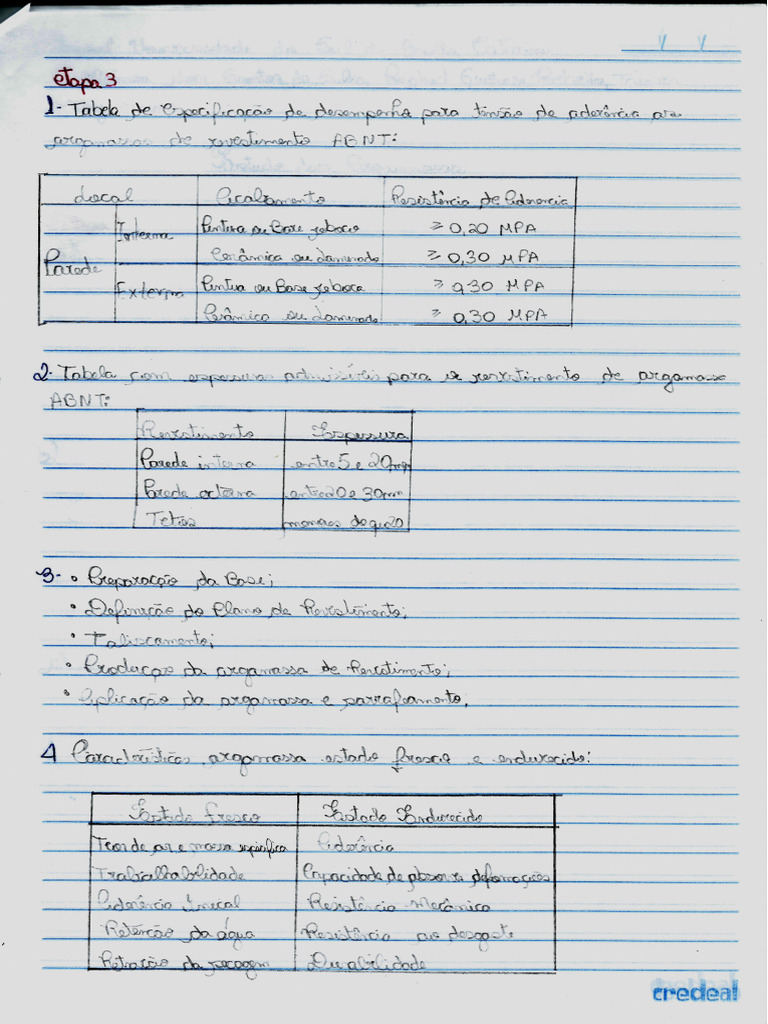 etapa 3
1- Tabela de especificação de desempenho para tensão de aderência as
argamassas de revestimento ABNT:
Local Acabamento Resistência de Aderencia
Parede Interna Pintura ou Base reboco ≥ 0,20 MPA
Cerâmica ou Laminado ≥ 0,30 MPA
Externa Pintura ou Base reboco ≥ 0,30 MPA
Cerâmica ou Laminado ≥ 0,30 MPA
2- Tabela com espessuras admissíveis para o revestimento de argamassa
ABNT:
Revestimento Espessura
Parede interna entre 5 e 20mm
Parede externa entre 20 e 30mm
Tetos menores do q 20
3- • Preparação da Base;
• Definição do Plano de Revestimento;
• Taliscamento;
• Produção da argamassa de Revestimento;
• Aplicação da argamassa e sarrafeamento.
4 Características argamassa estado fresco e endurecido:
Estado Fresco Estado Endurecido
Teor de ar e massa especifica Aderência
Trabalhabilidade Capacidade de absorver deformações
Aderência Inicial Resistência Mecânica
Retenção da água Resistência ao desgaste
Retração da secagem Durabilidade
credeal